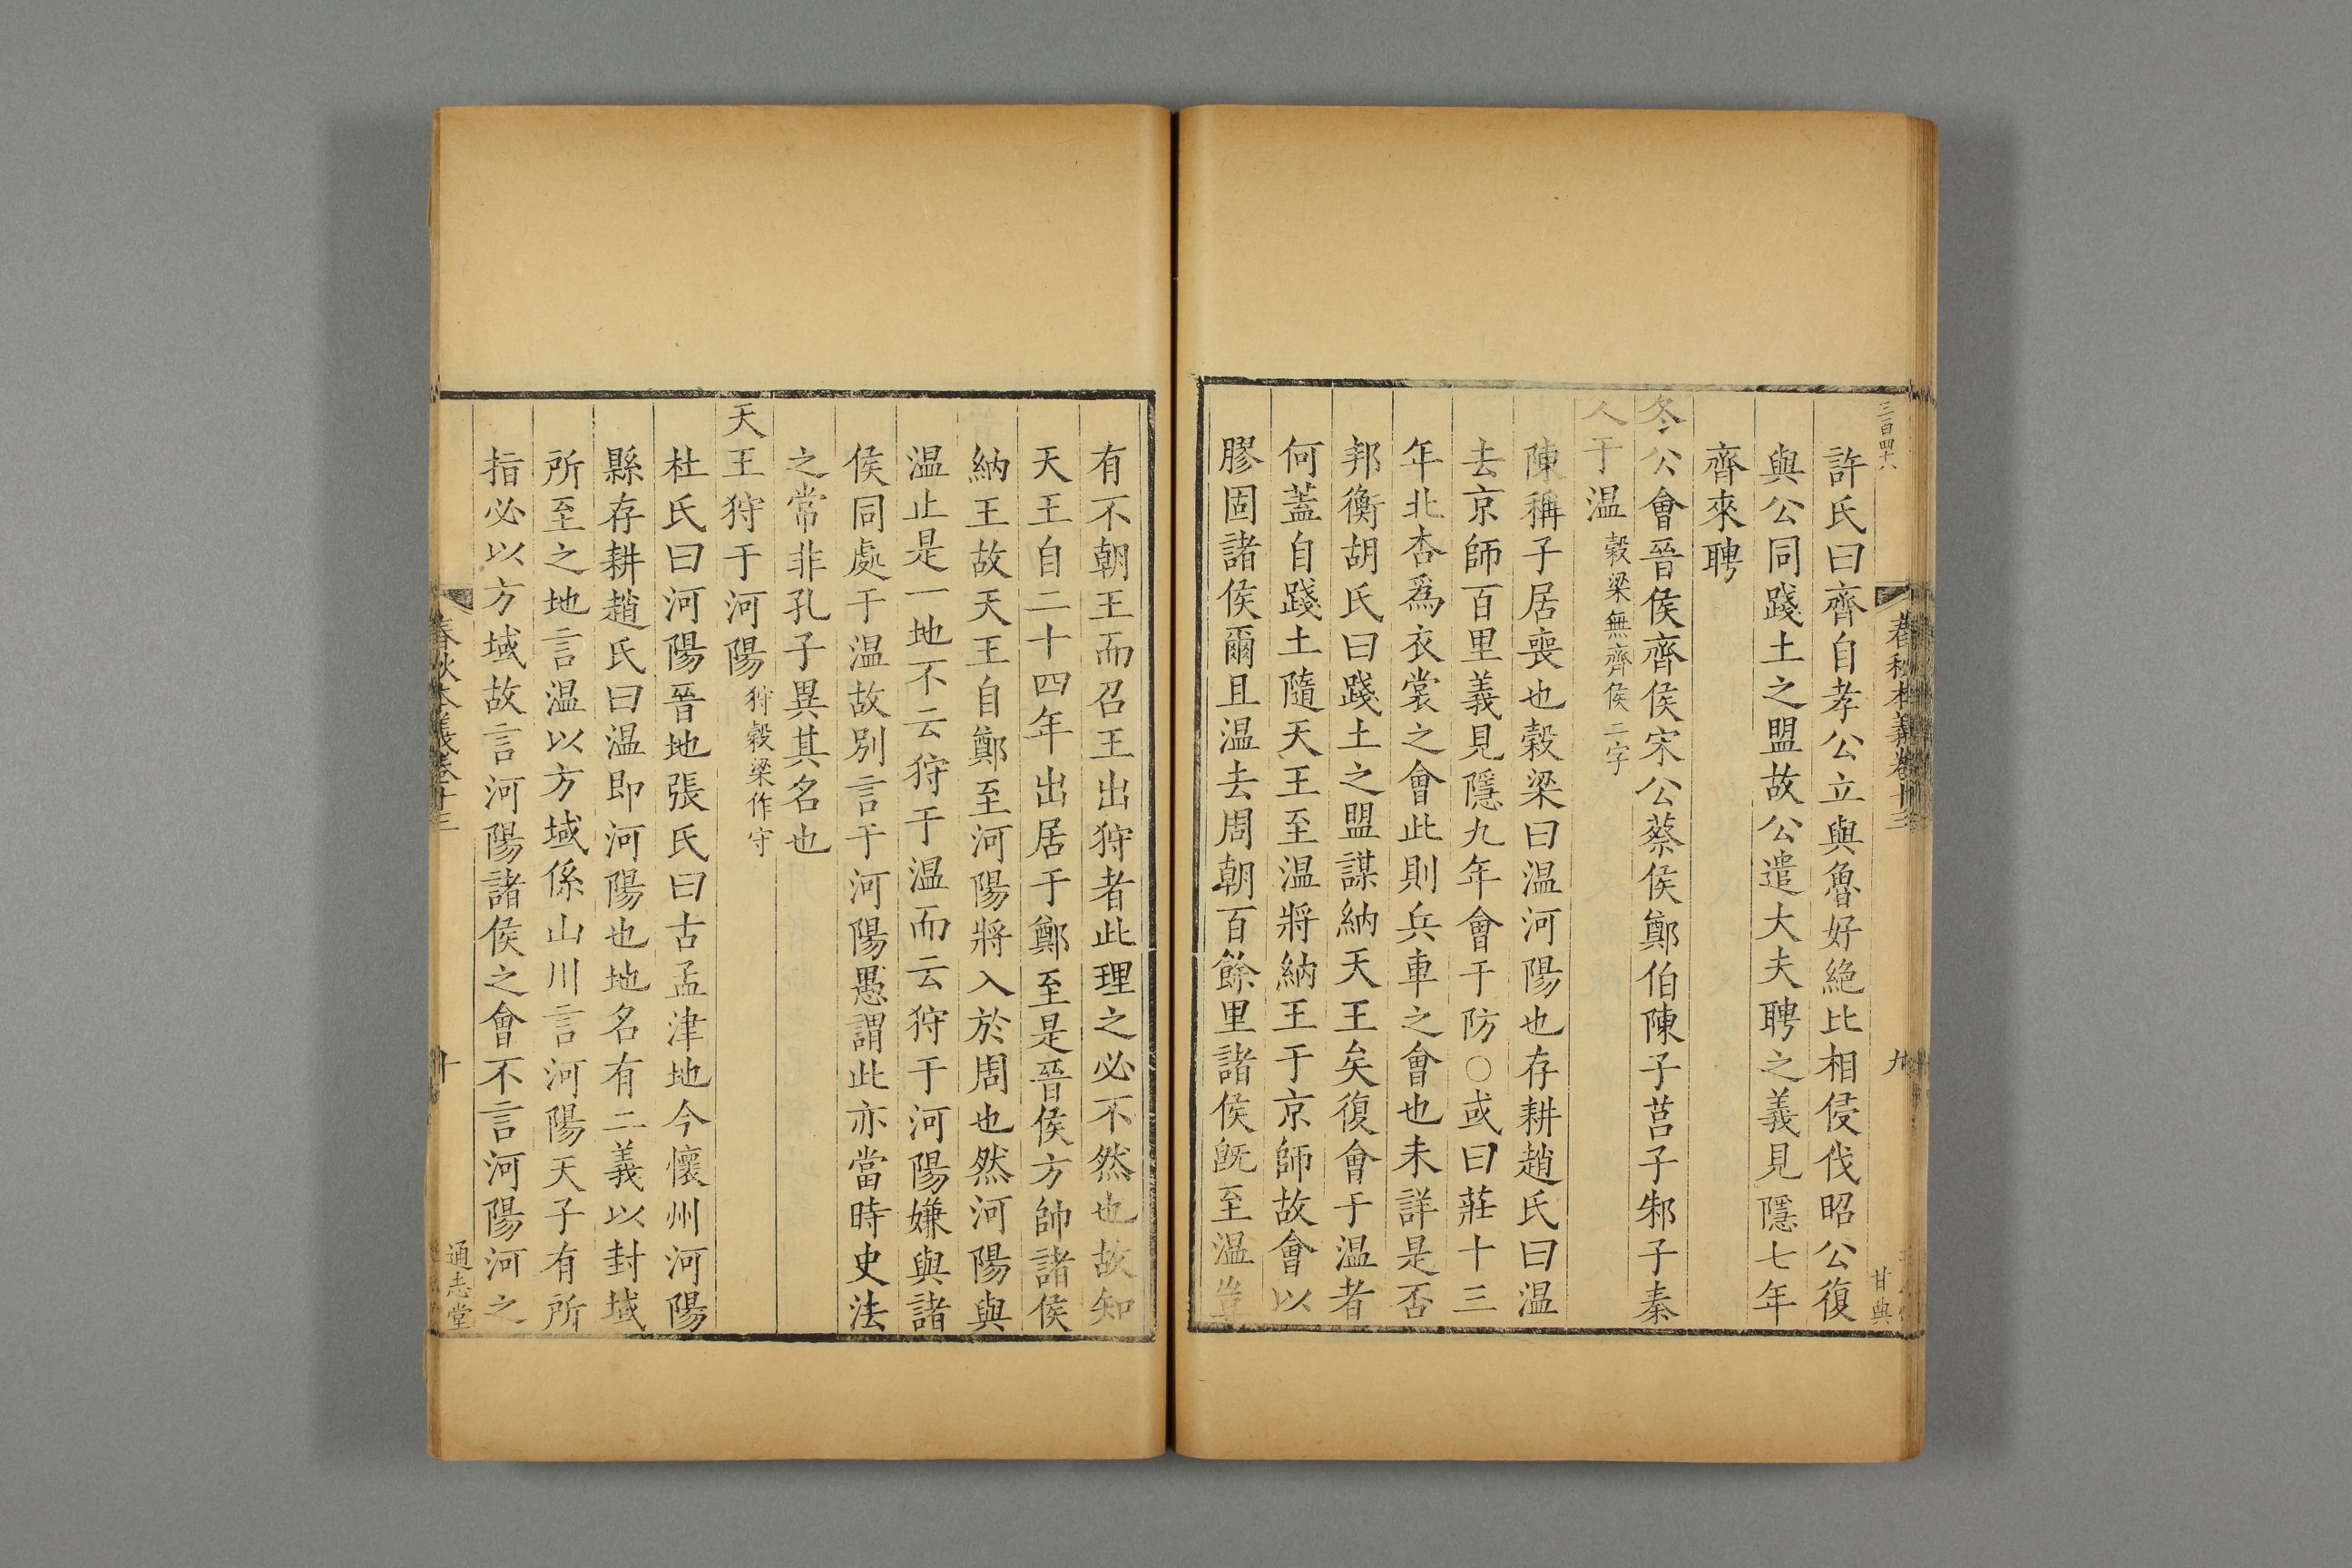 三百四十六
春秋本義卷十三
九
甘典
許氏曰齊自孝公立與魯好絶比相侵伐昭公復
與公同踐土之盟故公遣大夫聘之義見隱七年
齊來聘
冬公會晉侯齊侯宋公蔡侯鄭伯陳子莒子邾子秦
人于温穀梁無齊侯二字
陳稱子居喪也穀梁曰温河陽也存耕趙氏曰温
去京師百里義見隱九年會于防○或曰莊十三
年北杏爲衣裳之會此則兵車之會也未詳是否
邦衡胡氏曰踐土之盟謀納天王矣復會于温者
何蓋自踐土隨天王至温將納王于京師故會以
膠固諸侯爾且温去周朝百餘里諸侯既至温豈
有不朝王而召王出狩者此理之必不然也故知
天王自二十四年出居于鄭至是晉侯方帥諸侯
納王故天王自鄭至河陽將入於周也然河陽與
温止是一地不云狩于温而云狩于河陽嫌與諸
侯同處于温故別言于河陽愚謂此亦當時史法
之常非孔子異其名也
天王狩于河陽狩穀梁作守
杜氏曰河陽晉地張氏曰古孟津地今懷州河陽
縣存耕趙氏曰温即河陽也地名有二義以封域
所至之地言温以方域係山川言河陽天子有所
指必以方域故言河陽諸侯之會不言河陽河之
春秋本義卷十三
十
通志堂